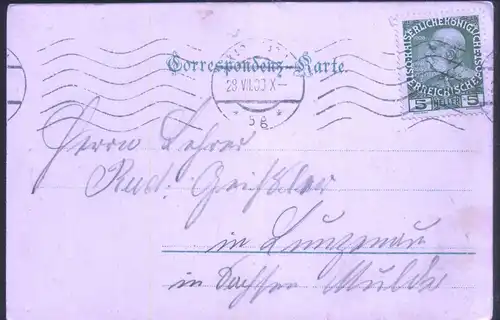 Correspondenz-Karte
KAISERLICHE KÖNIGLICHE ÖSTERREICHISCHE
5 HELLER 5
5 g
Herrn Lehrer
Rud. Geißler
in Lunzenau
in Sachsen Mulde